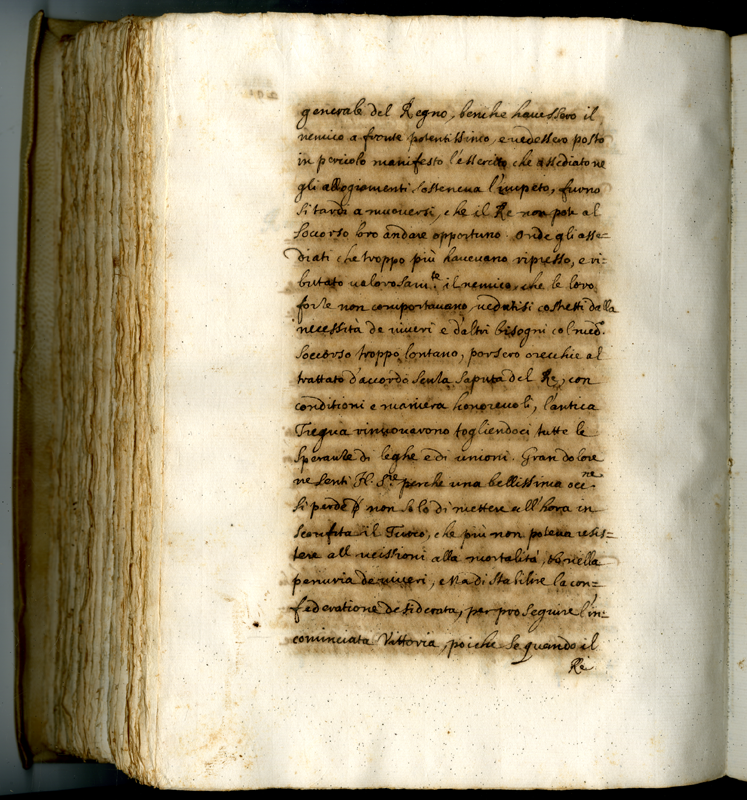 generale del Regno, benche havessero il
nemico a fronte potentissimo, e vedessero posto
in pericolo manifesto l'essercito che assediatone
gli allogiamenti sosteneva l'impeto, furno
si tardi a muoversi, che il Re non potè al
soccorso loro andare opportuno. Onde gli asse=
diati che troppo più havevano ripresso, e ri=
buttato valorosam.te il nemico, che le loro
forze non comportavano, vedutisi costretti dalla
necessità de viveri e d'altri bisogni col med.o
soccorso troppo lontano, porsero orecchie al
trattato d'accordo senza saputa del Re, con
conditioni e maniera honorevoli, l'antica
Tregua rinnovarono togliendoci tutte le
speranze di leghe e di unioni. Gran dolore
ne sentì N. S.re perche una bellissima occ.ne
si perde non solo di mettere all'hora in
sconfita il Turco, che più non poteva resis=
tere all'uccissioni alla mortalità, nella
penuria de viveri, e di stabilire la con=
federatione desiderata, per proseguire l'in=
cominciata Vittoria, poiche se quando il
Re